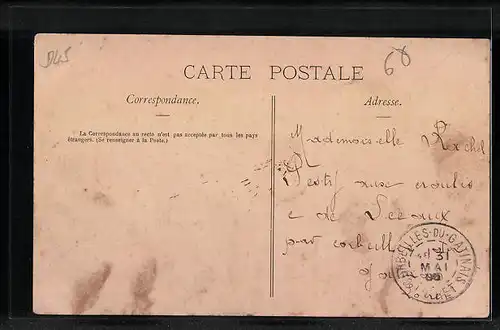 68
CARTE POSTALE
Correspondance.
La Correspondance au recto n'est pas acceptée par tous les pays
étrangers. (Se renseigner à la Poste.)
Adresse.
Mademoiselle Rachel
Restif aux moulins
de Sceaux
par corbeilles
CORBEILLES-DU-GATINAIS
31
MAI
LOIRET